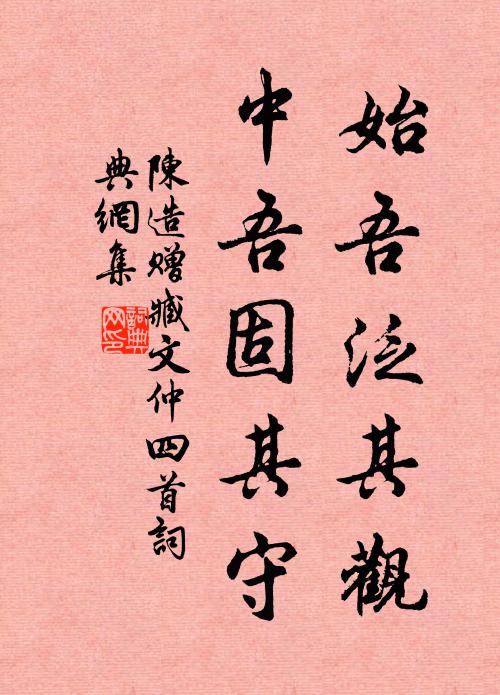 始吾泛其觀
中吾固其守
陳造贈臧文仲四首詞
典網集
詞典网印